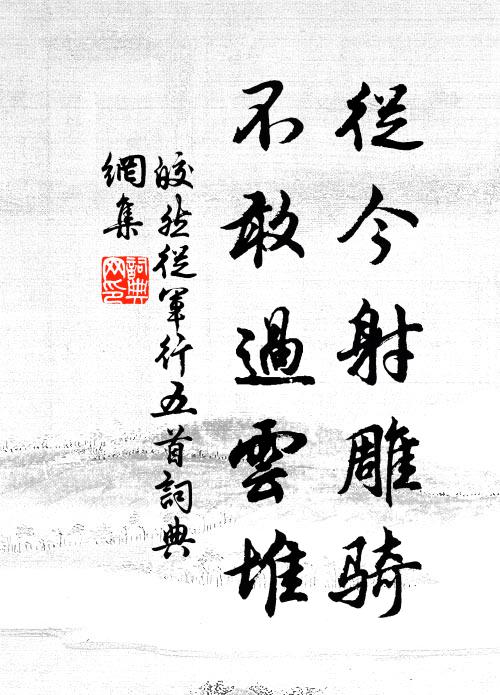 從今射雕騎
不敢過雲堆
皎然從軍行五首詞典
網集
詞典
网印